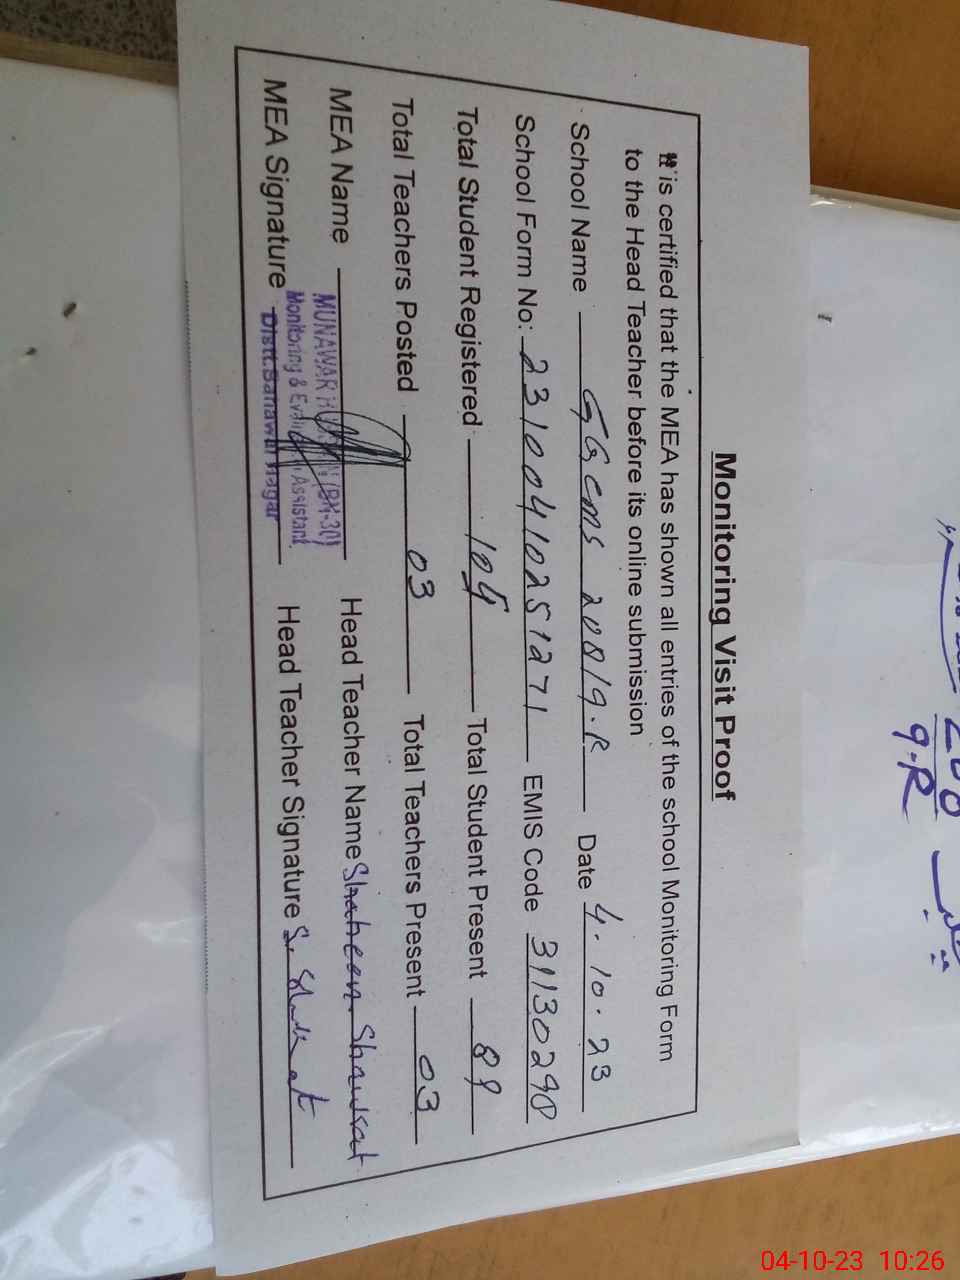 Monitoring Visit Proof
It is certified that the MEA has shown all entries of the school Monitoring Form
to the Head Teacher before its online submission
School Name GGCMS 200/9.R Date 4.10.23
School Form No: 23100410251271 EMIS Code 31130290
Total Student Registered 104 Total Student Present 89
Total Teachers Posted 03 Total Teachers Present 03
MEA Name MUNAWAR (BM-30) Head Teacher Name Shaheen Shawkat
Monitoring & Assistant
MEA Signature Distt. Bahawalnagar Head Teacher Signature S. Shaukat
200
9.R
04-10-23 10:26